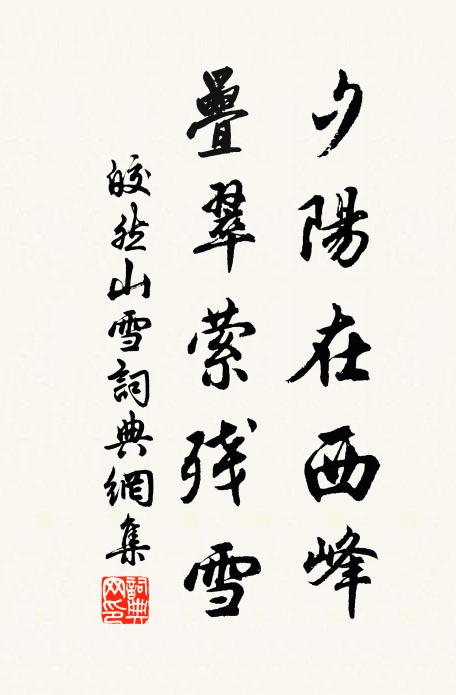 夕陽在西峰
疊翠萦残雪
皎然山雪詞典網集
詞典网印